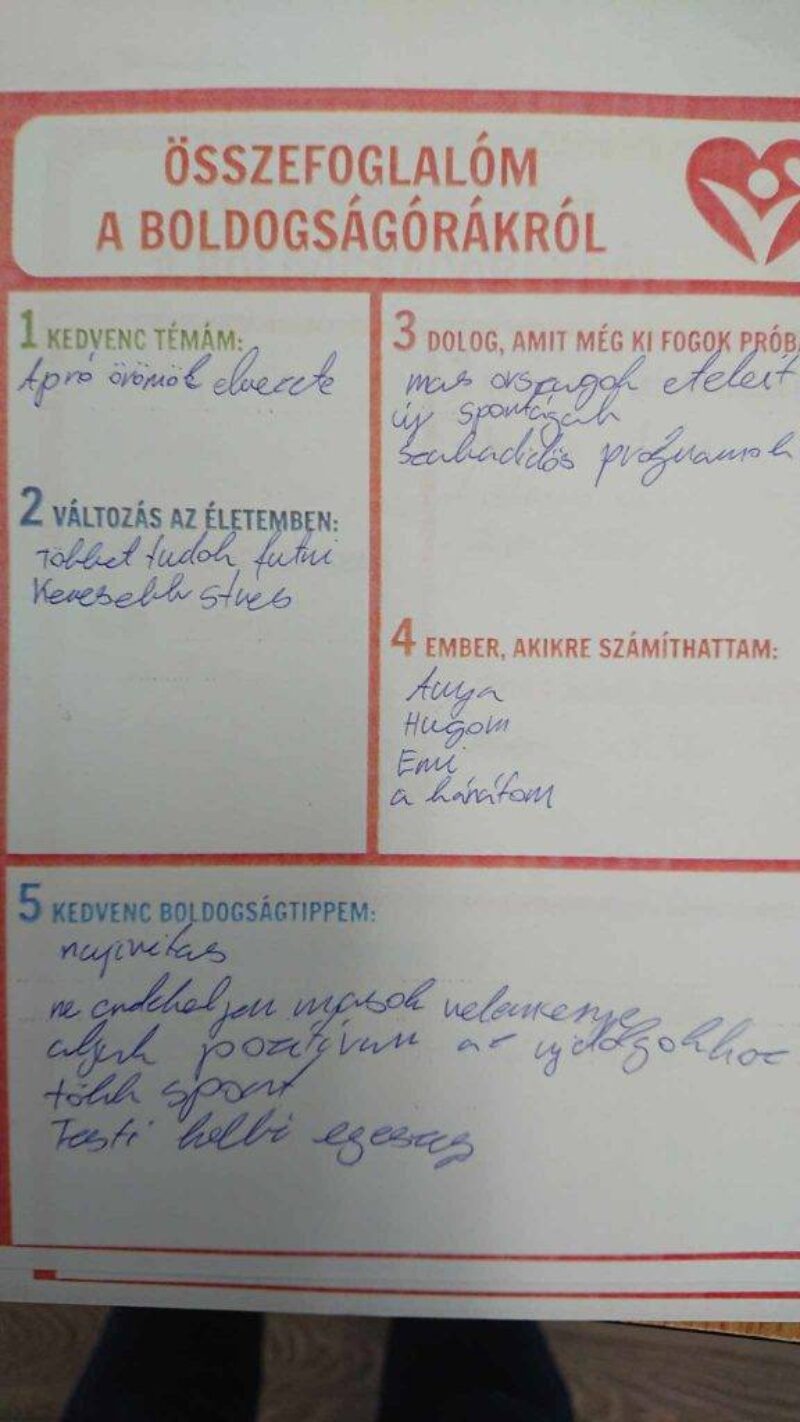 ÖSSZEFOGLALÓM
A BOLDOGSÁGÓRÁKRÓL
1 KEDVENC TÉMÁM:
Apró örömök élvezete
2 VÁLTOZÁS AZ ÉLETEMBEN:
többet tudok futni
Kevesebb stres
3 DOLOG, AMIT MÉG KI FOGOK PRÓB
mas országok eteleit
új sportágak
szabadidős programok
4 EMBER, AKIKRE SZÁMÍTHATTAM:
Anya
Hugom
Emi
a barátom
5 KEDVENC BOLDOGSÁGTIPPEM:
nyivitas
ne érdekeljen masok velemenye
álljunk pozitívan az új dolgokhoz
több sport
Testi lelki egeszseg